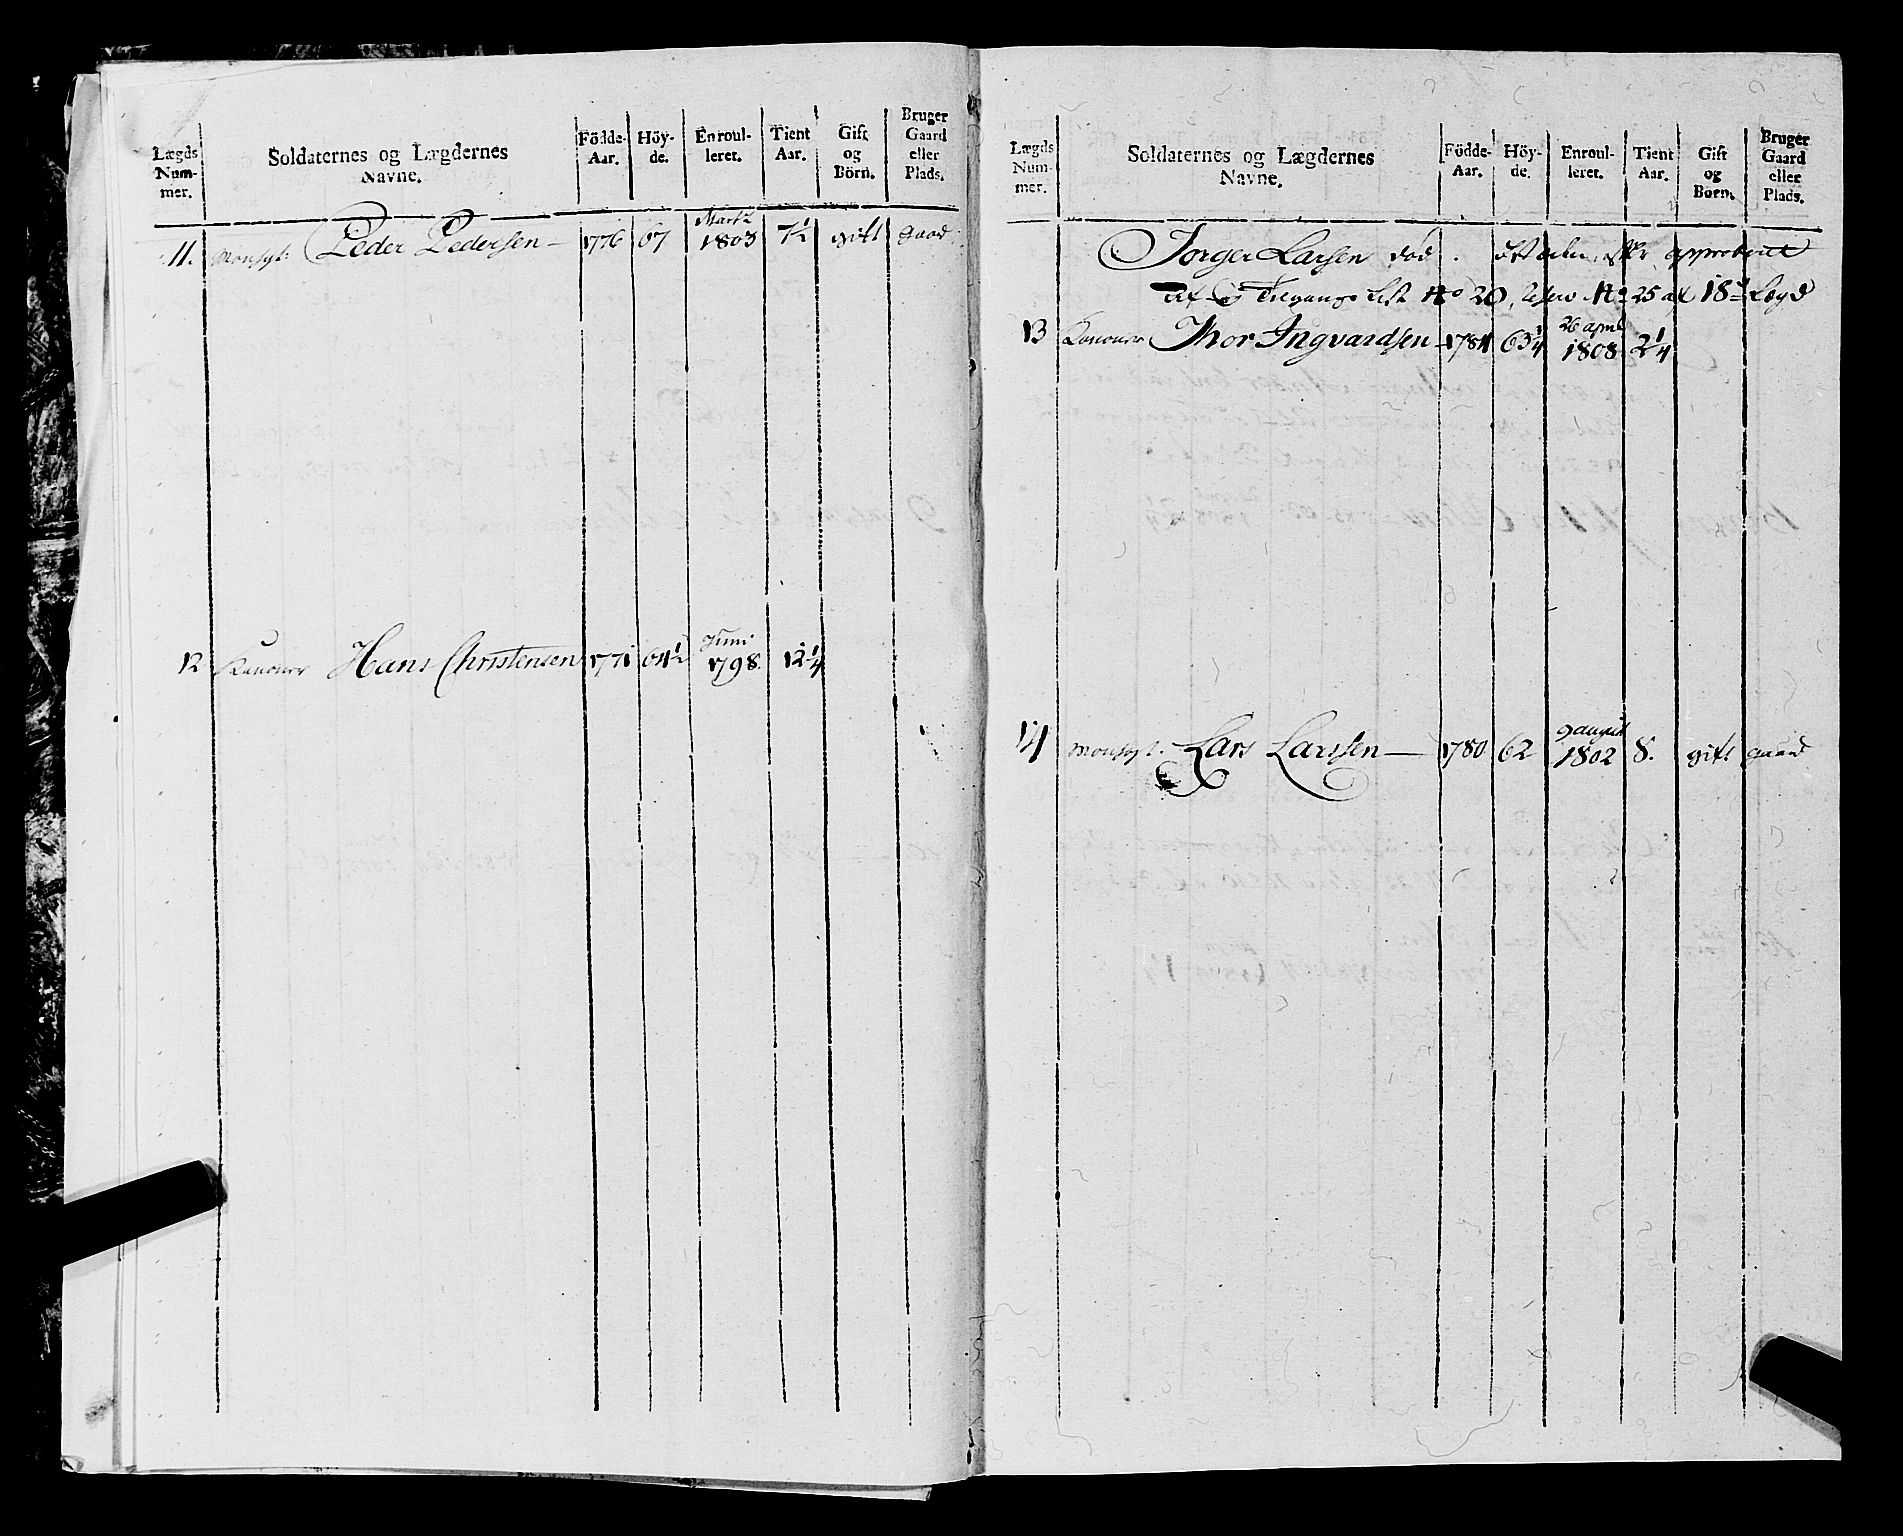 Lægds Num- mer.
Soldaternes og Lægdernes Navne.
Födde- Aar.
Höy- de.
Enroul- leret.
Tient Aar.
Gift og Börn.
Bruger Gaard eller Plads.
11. Peder Pedersen — 1776 67 Martz 1803 7½ gift gaard
12 Kanoner Hans Christensen 1771 64½ Juni 1798. 12¼
Lægds Num- mer.
Soldaternes og Lægdernes Navne.
Födde- Aar.
Höy- de.
Enroul- leret.
Tient Aar.
Gift og Börn.
Bruger Gaard eller Plads.
Torger Larsen död. approberet
af Tilgangs List No 20, No 25 af 18de Lægd
13 Kanoner Thor Ingvardsen 1784 63¼ 26 april 1808 2¼
14 Lars Larssen — 1780 62 9 august 1802 8. gift gaard